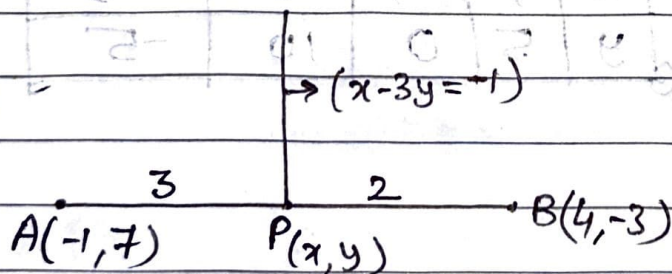 → (x-3y=-1)
3 2
A(-1,7) P(x,y) B(4,-3)